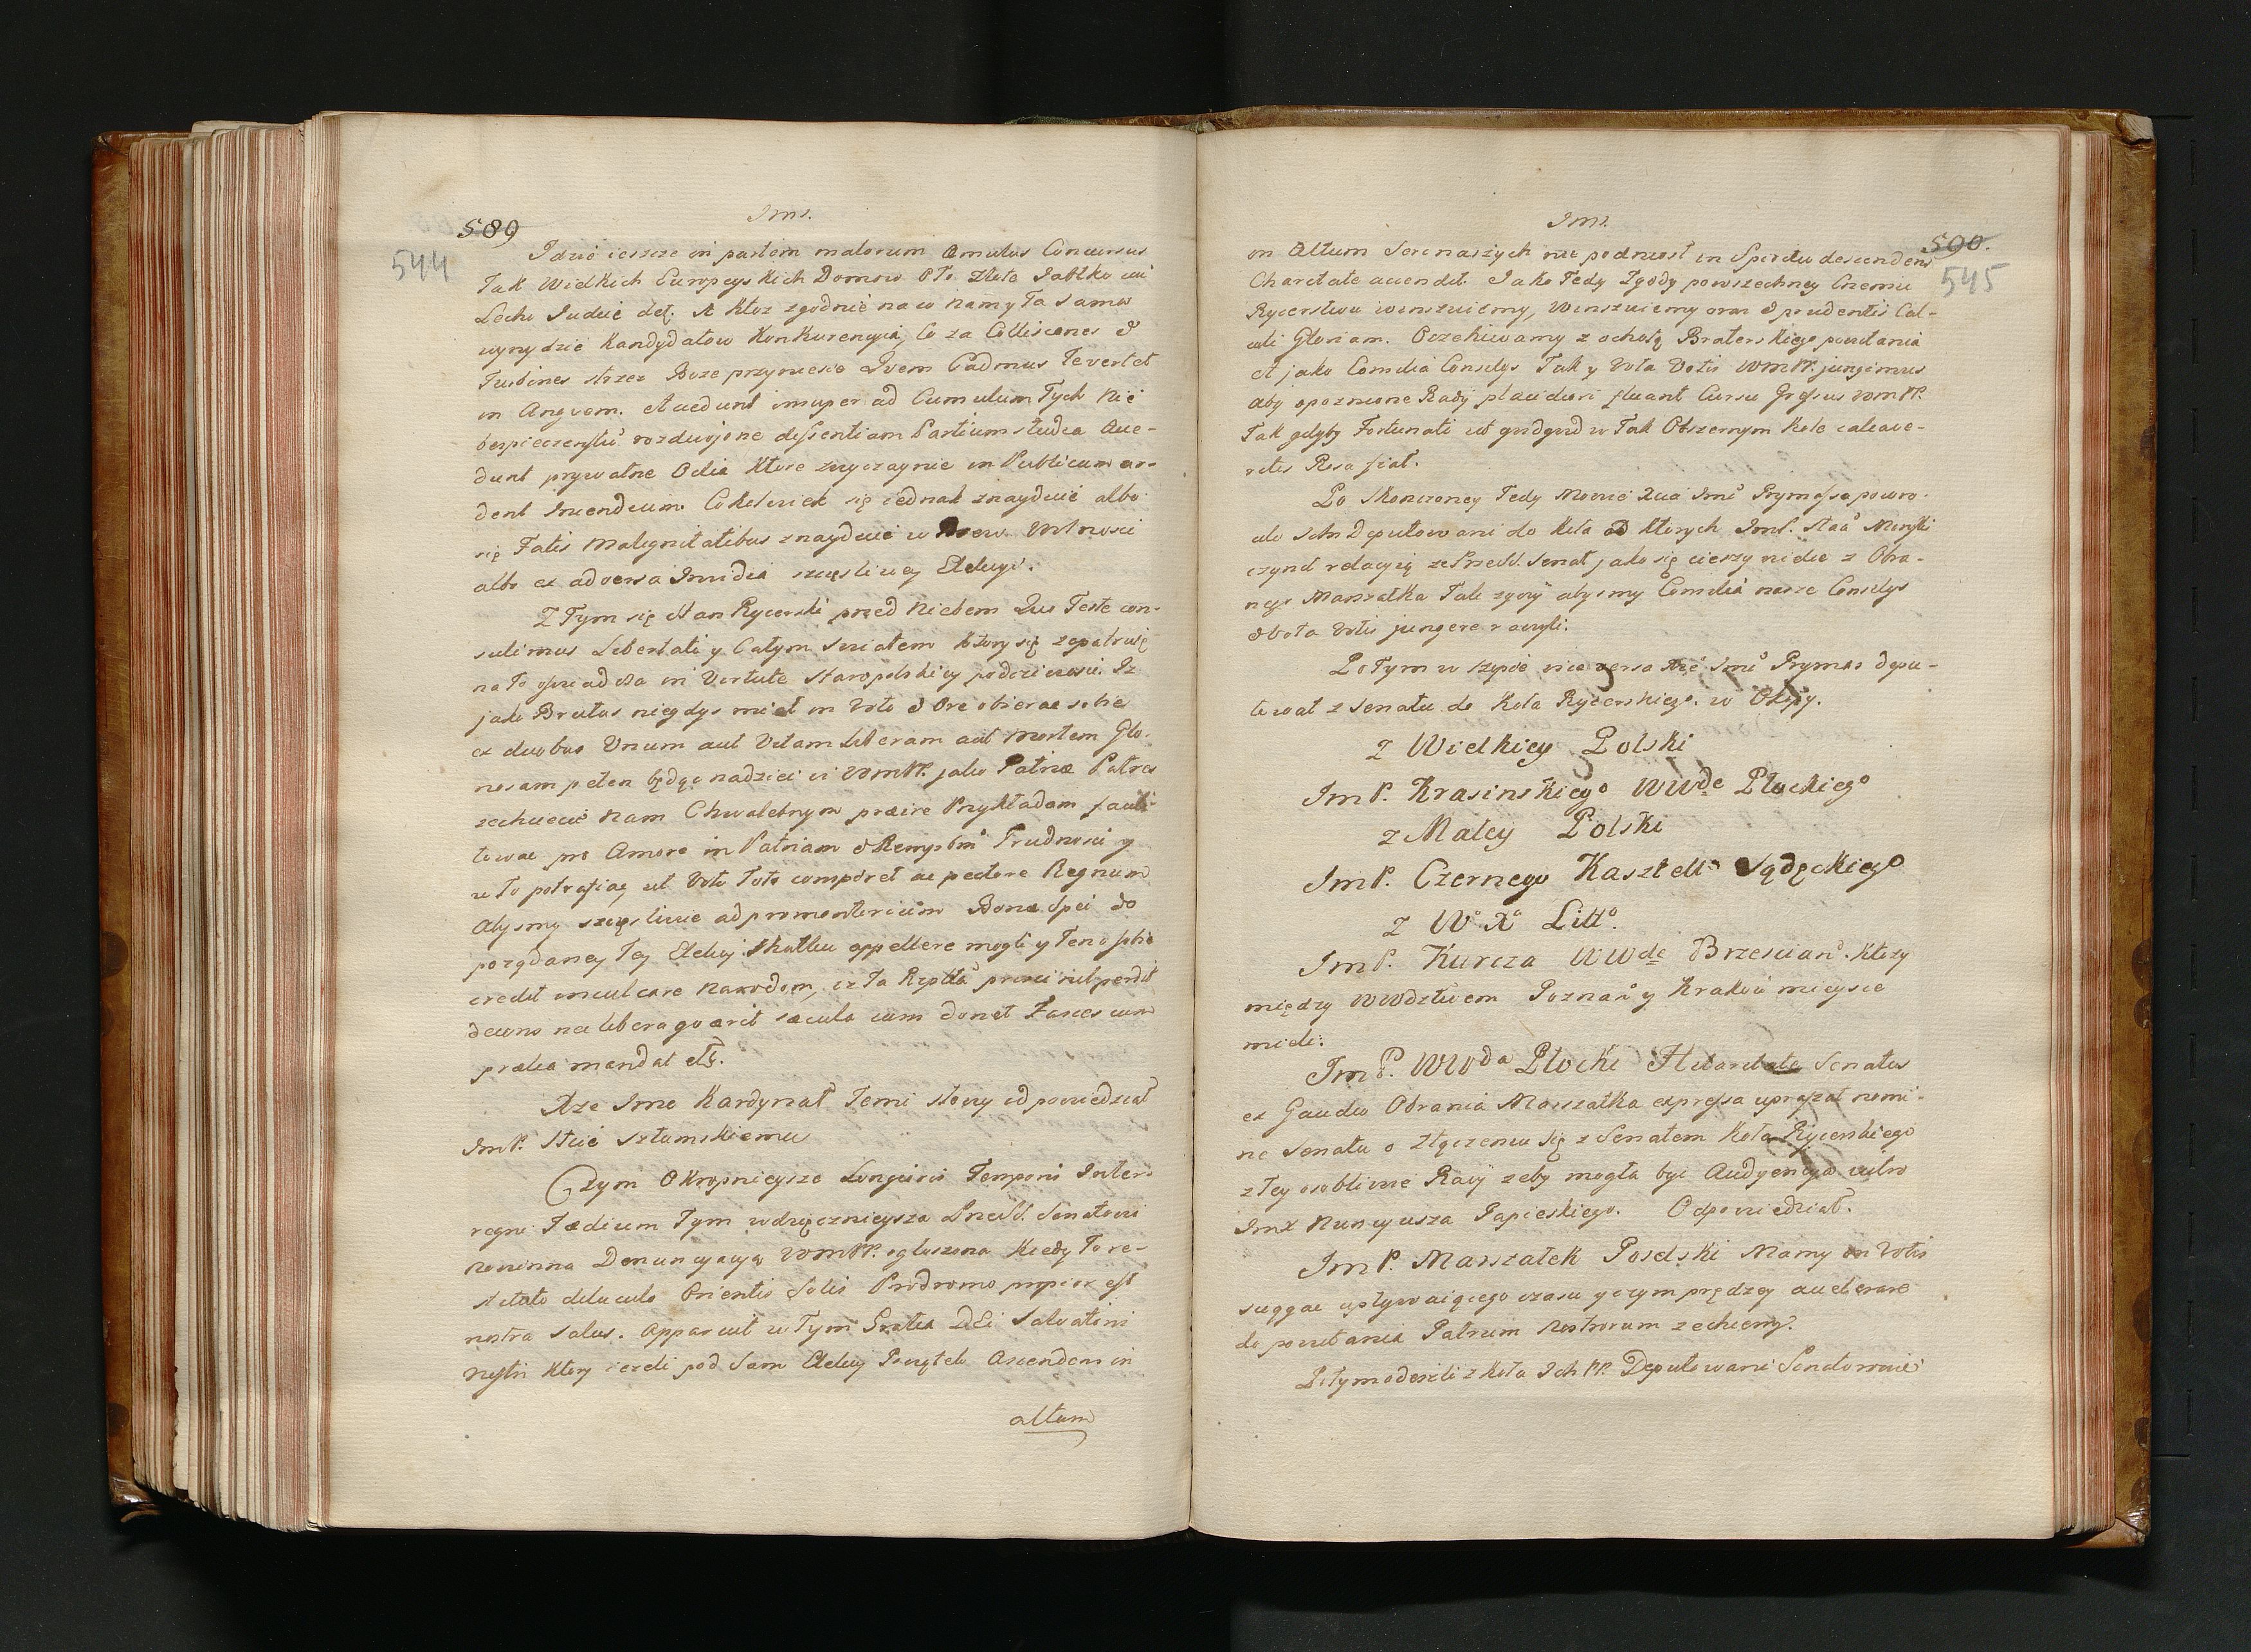 Jms.
589
544
Idzie ieszcze in partem malorum Æmulus Concursus
Tak Wielkich Europeyskich Domow O To Złote Jabłko cui
Lecho Judice det. A Ktoz zgodnie na co namy Ta sama
wynydzie Kandydatow Konkurencyia, Co za Collisiones &
Turbines strzez Boze przyniesie Quem Cadmus Tevertet
in Angvem. Accedunt insuper ad Cumulum Tych Nie
bespieczenstw rozdwojone dissentiam Partium studia Acce-
dunt prywatne Odia Ktore zwyczaynie in Publicum ar-
dent Incendium. Cokolwiek się iednak znayduie albo
się Fatis Malignitatibus znayduie w Wolnosci
albo ex adversa Invidia szczesliwey Elekcyi.
Z Tym się Stan Rycerski przed Niebem Quo Teste con-
sulimus Libertati y Całym swiatem Ktory się zapatruię
na To oswiadcza in Virtute Staropolskiey podcziwosci. Iz
jako Brutus niegdys miał in Voto & Ore obierac sobie
ex duobus Unum aut Vitam liberam aut mortem Glo-
riosam peten będąc nadziei iz WMPP. jako Patriæ Patres
zechcecie Nam Chwalebnym præire Przykładom facili-
towac pro Amore in Patriam & Rempbm Trudnosci y
w To potrafiac, ut Voto Toto comparet ac pectore Regnum
Abysmy szczęsliwie ad promontorium Bonæ Spei do
poządaney Tey Elekcyi Skutku appellere mogli y Teno sobie
credit inculcare Narodom, iz Ta Rzptta
pralia mandat etc.
Xze Jmc Kardynał Temi słowy odpowiedział
JmP. Stcie Szłumskiemu
Czym Okropnieysze Longioris Temporis Inter-
regni Tædium Tym wdzięcznieysza Przesw. Senatowi
Denuncyacya WMPP. ogłoszona Kiedy To re-
stituto diluculo Orientis Solis Prodromo propior est
nostra Salus. Apparuit w Tym Gratia DEi Salvatoris
Nostri Ktory iezeli pod Sam Elekcyi Początek Ascendens in
altum
Jms.
590.
545
in Altum Serc naszych nie podniosł in Spiritu descendens
Charitate accendit. Jako Tedy Zgody powszechney Cnemu
Rycerstwu winszuiemy, Winszuiemy oraz & prudentis Cal-
culi Gloriam. Oczekiwamy z ochotą Braterskiego powitania
et jako Consilia Consiliys Tak y Vota Votis WMPP. jungimus
aby opoznione Rady placidiori fluant Cursu Gressus WMPP.
Tak gdyby Fortunati ut quidquid w Tak Obszernym Kole calcave-
retis Rosa fiat.
Po Skonczoney Tedy Mowie Xcia Jmci Prymassa powro-
cili Ichm Deputowani do Koła od Ktorych JmP. Stta Minski
czynił relacyią ze Przesw. Senat jako się cieszy wielce z Obra-
nego Marszałka Tak zyczy abysmy Consilia nasze Consiliys
& Vota Votis jungere raczyli.
Po Tym w szopie vice versa Xze Jmc Prymas depu-
towat z Senatu do Koła Rycerskiego. w Okopy.
Z Wielkiey Polski
JmP. Krasinskiego WWde Płockiego
z Małey Polski
JmP. Czernego Kasztella Sądeckiego
z Wo Xo Litto.
JmP. Kurcza WWde Brzescian. Ktorzy
między WWdztwem Poznan y Krakow mieysce
mieli:
JmP. WWda Płocki Hilaritate Senatus
ex Gaudio Obrania Marszałka expressa upraszał nomi-
ne Senatu o Złączeniu się z Senatem Koła Rycerskiego
z Tey osobliwie Racyi zeby mogła byc Audyencya iutro
Jmx Nuncyusza Papieskiego. Odpowiedział.
JmP. Marszałek Poselski Mamy in Votis
upływaiącego czasu y czym prędzey accelerare
do powitania Patrum Nostrorum zechcemy.
Po Tym odeszli z Koła Ich PP. Deputowani Senatorowie